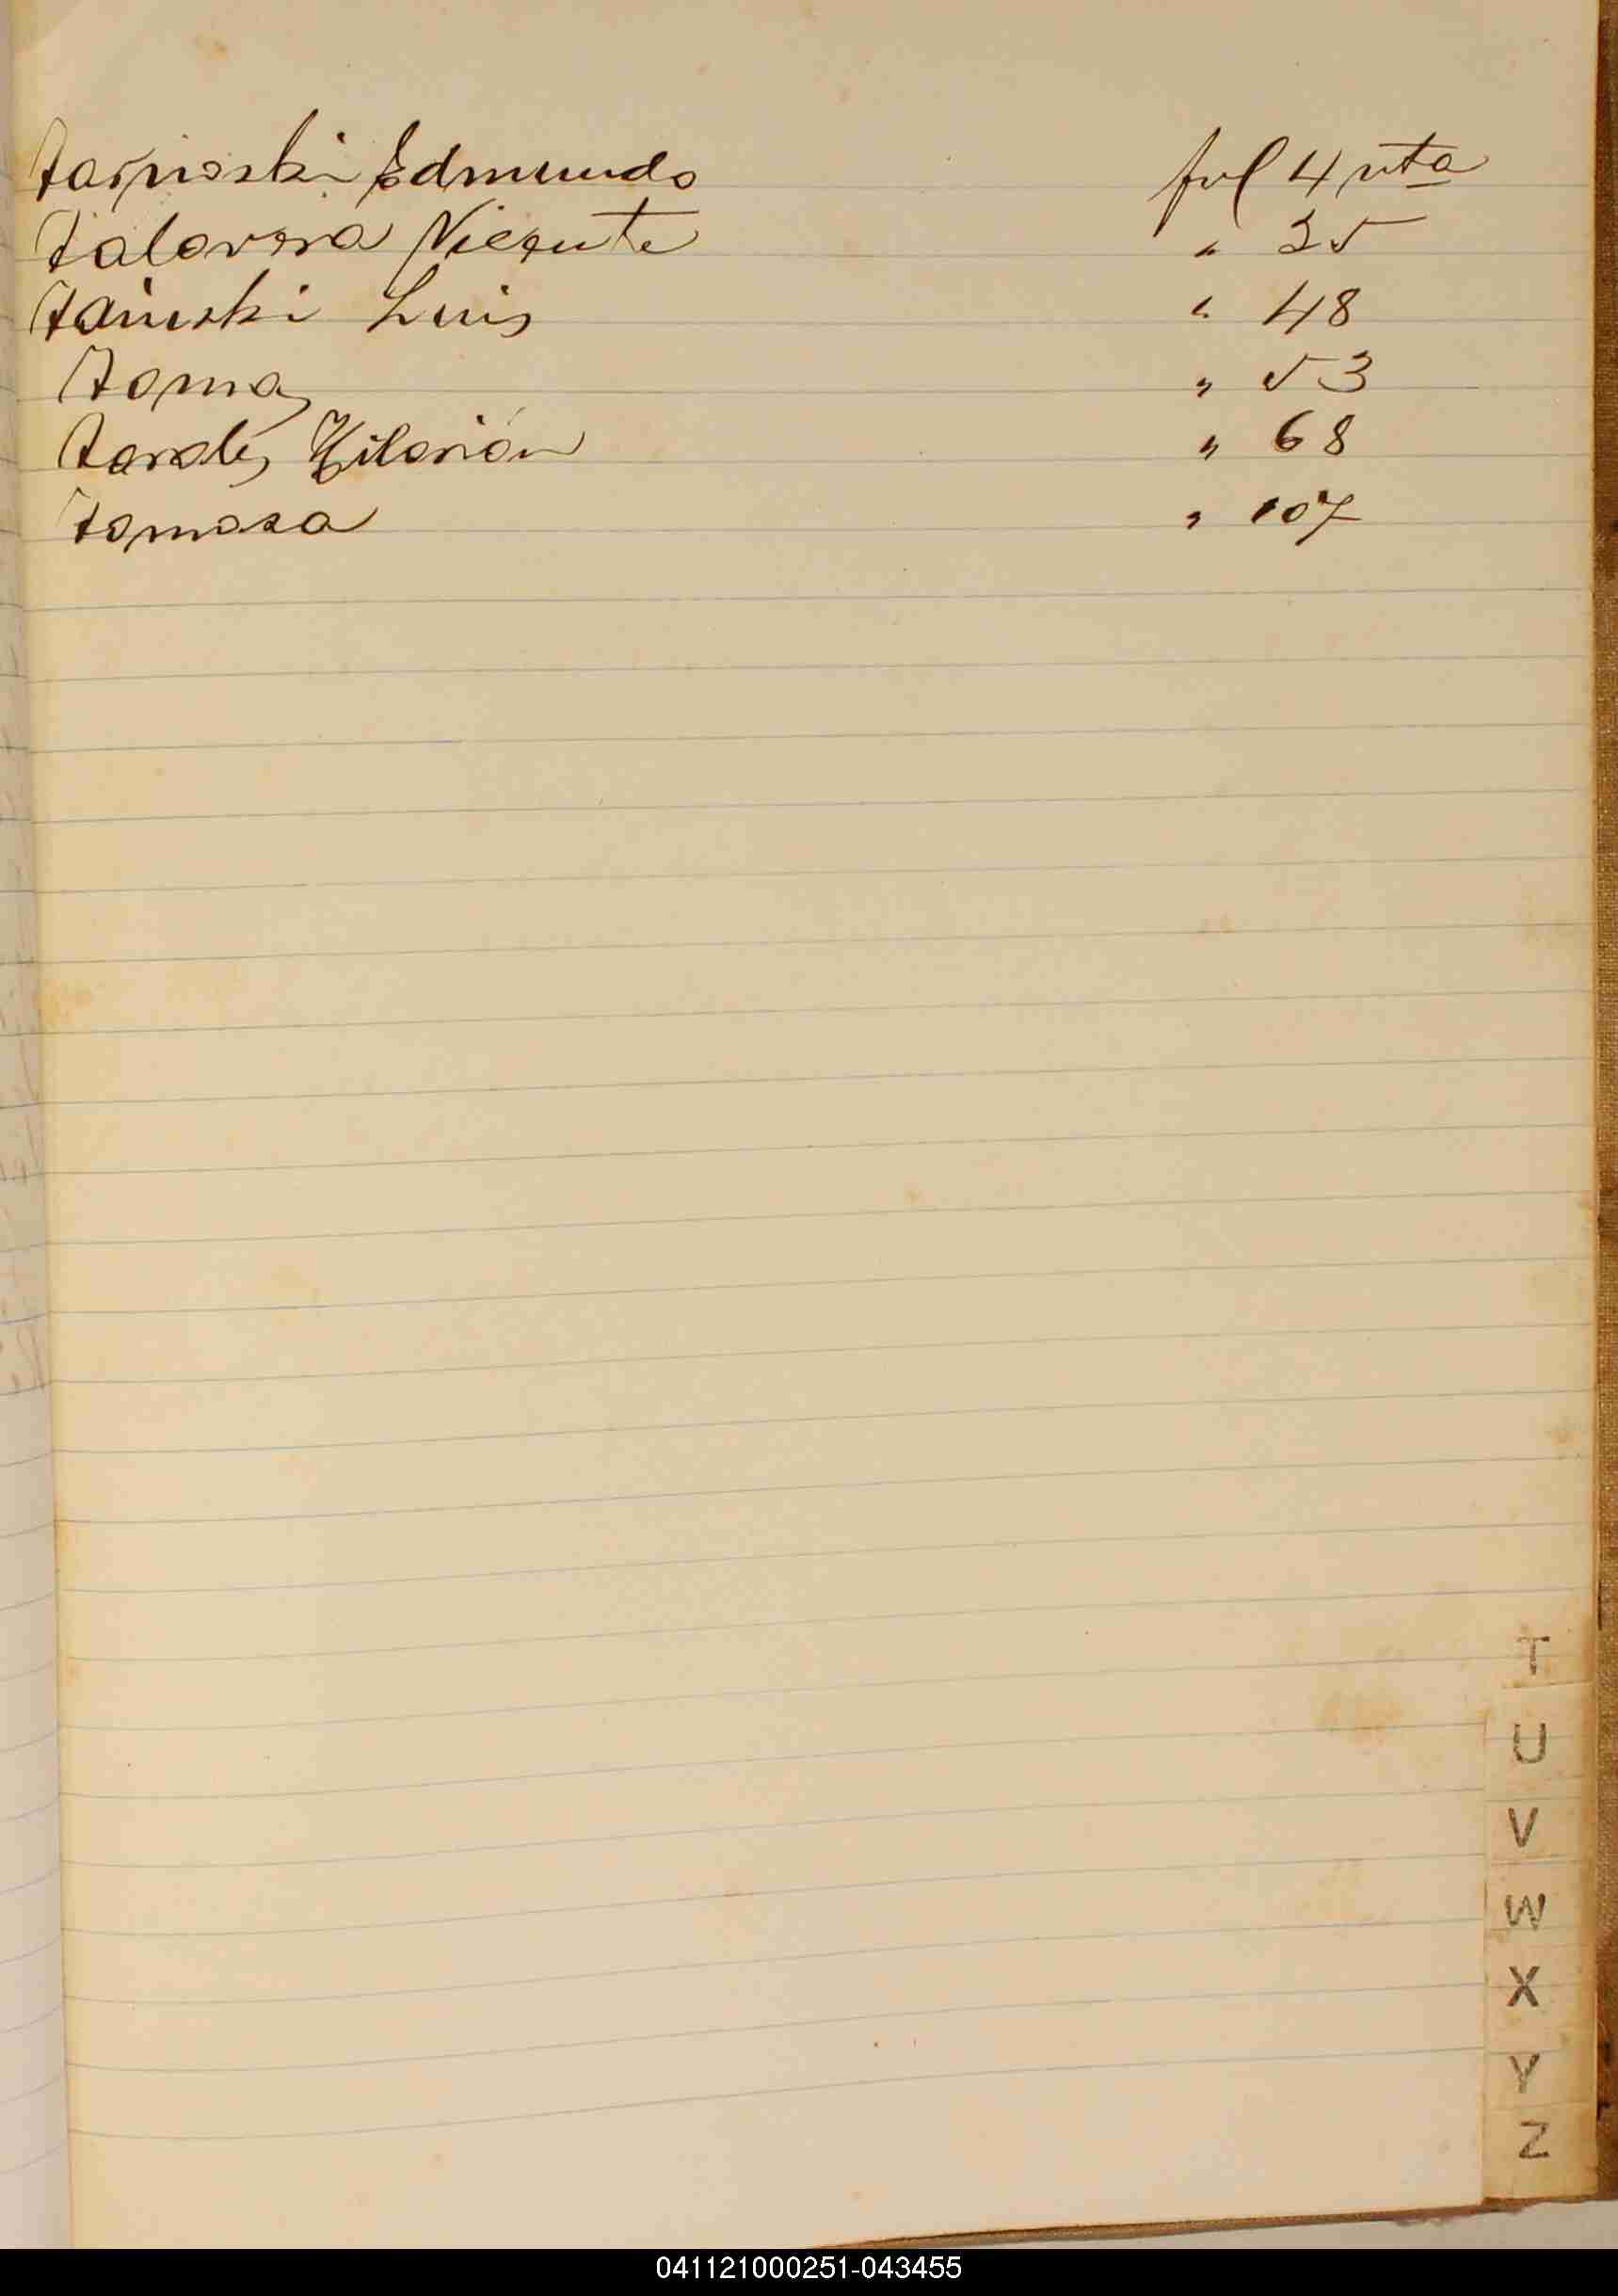 Tarnoski Edmundo fol 4 vta
Talavera Vicente " 25
Tainski Luis " 48
Tomas " 53
Tardes Hilarión " 68
Tomasa " 107
T
U
V
W
X
Y
Z
041121000251-043455